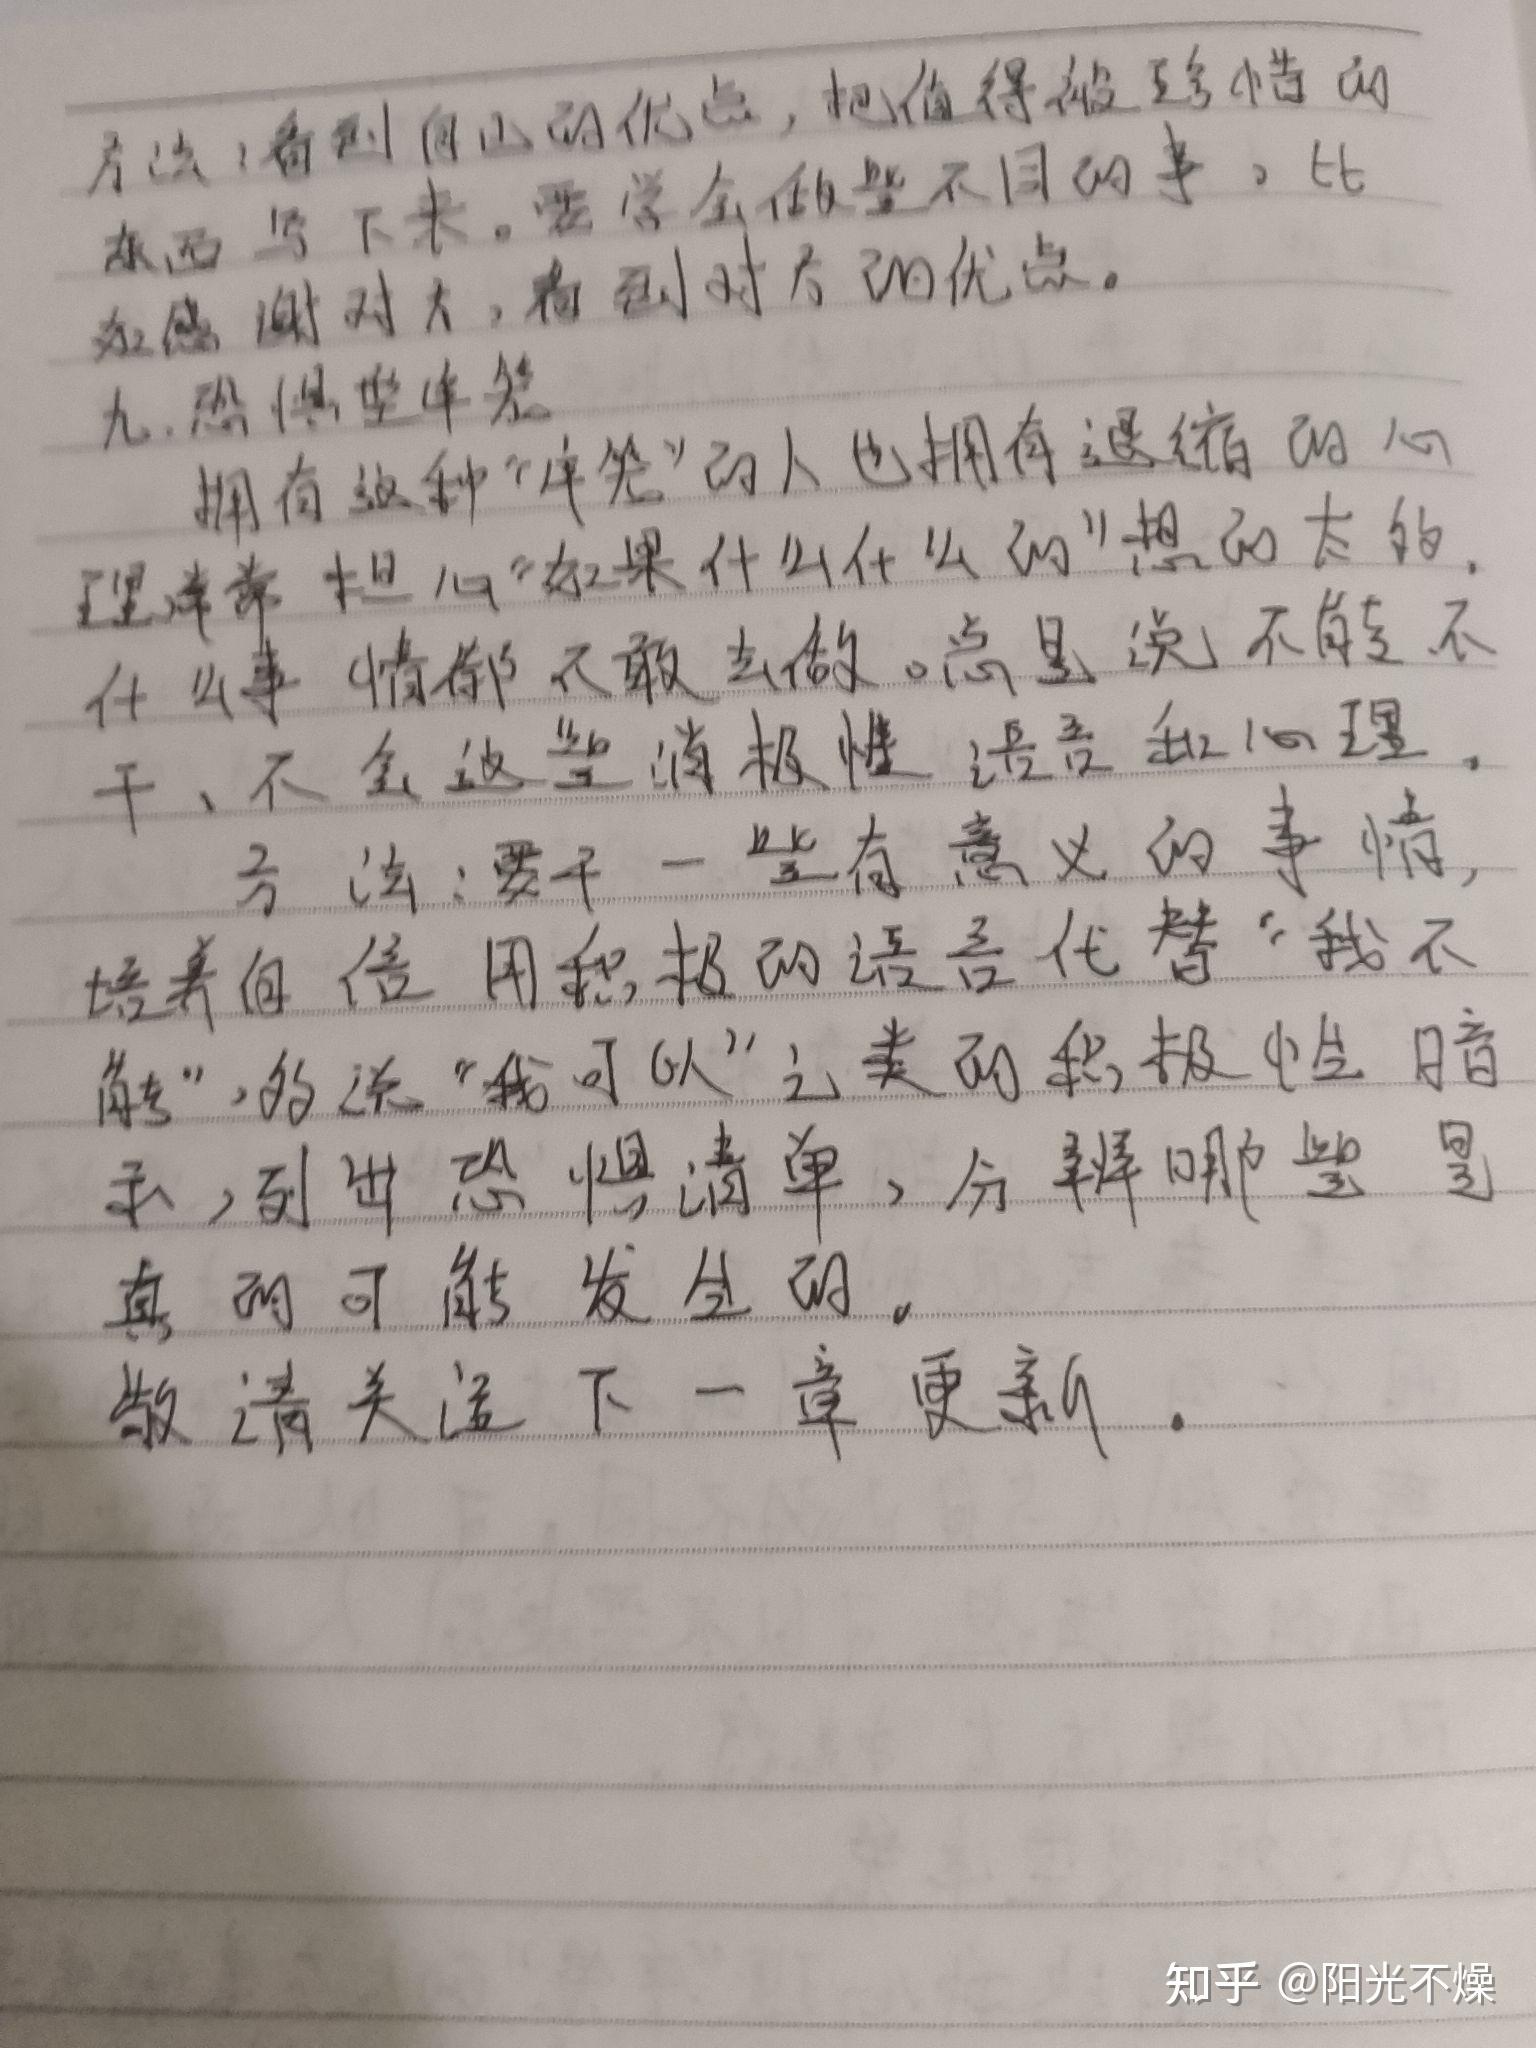 方法：看到自己的优点，把值得被珍惜的
东西写下来。要学会做些不同的事，比
如感谢对方，看到对方的优点。
九.恐惧型牢笼
拥有这种“牢笼”的人也拥有退缩的心
理常常担心“如果什么什么的”想的太多.
什么事情都不敢去做。总是说不能不
干、不会这些消极性语言和心理.
方法：要干一些有意义的事情，
培养自信 用积极的语言代替“我不
能”，多说“我可以”之类的积极性暗
示，列出恐惧清单，分辨哪些是
真的可能发生的。
敬请关注下一章更新.
知乎 @阳光不燥